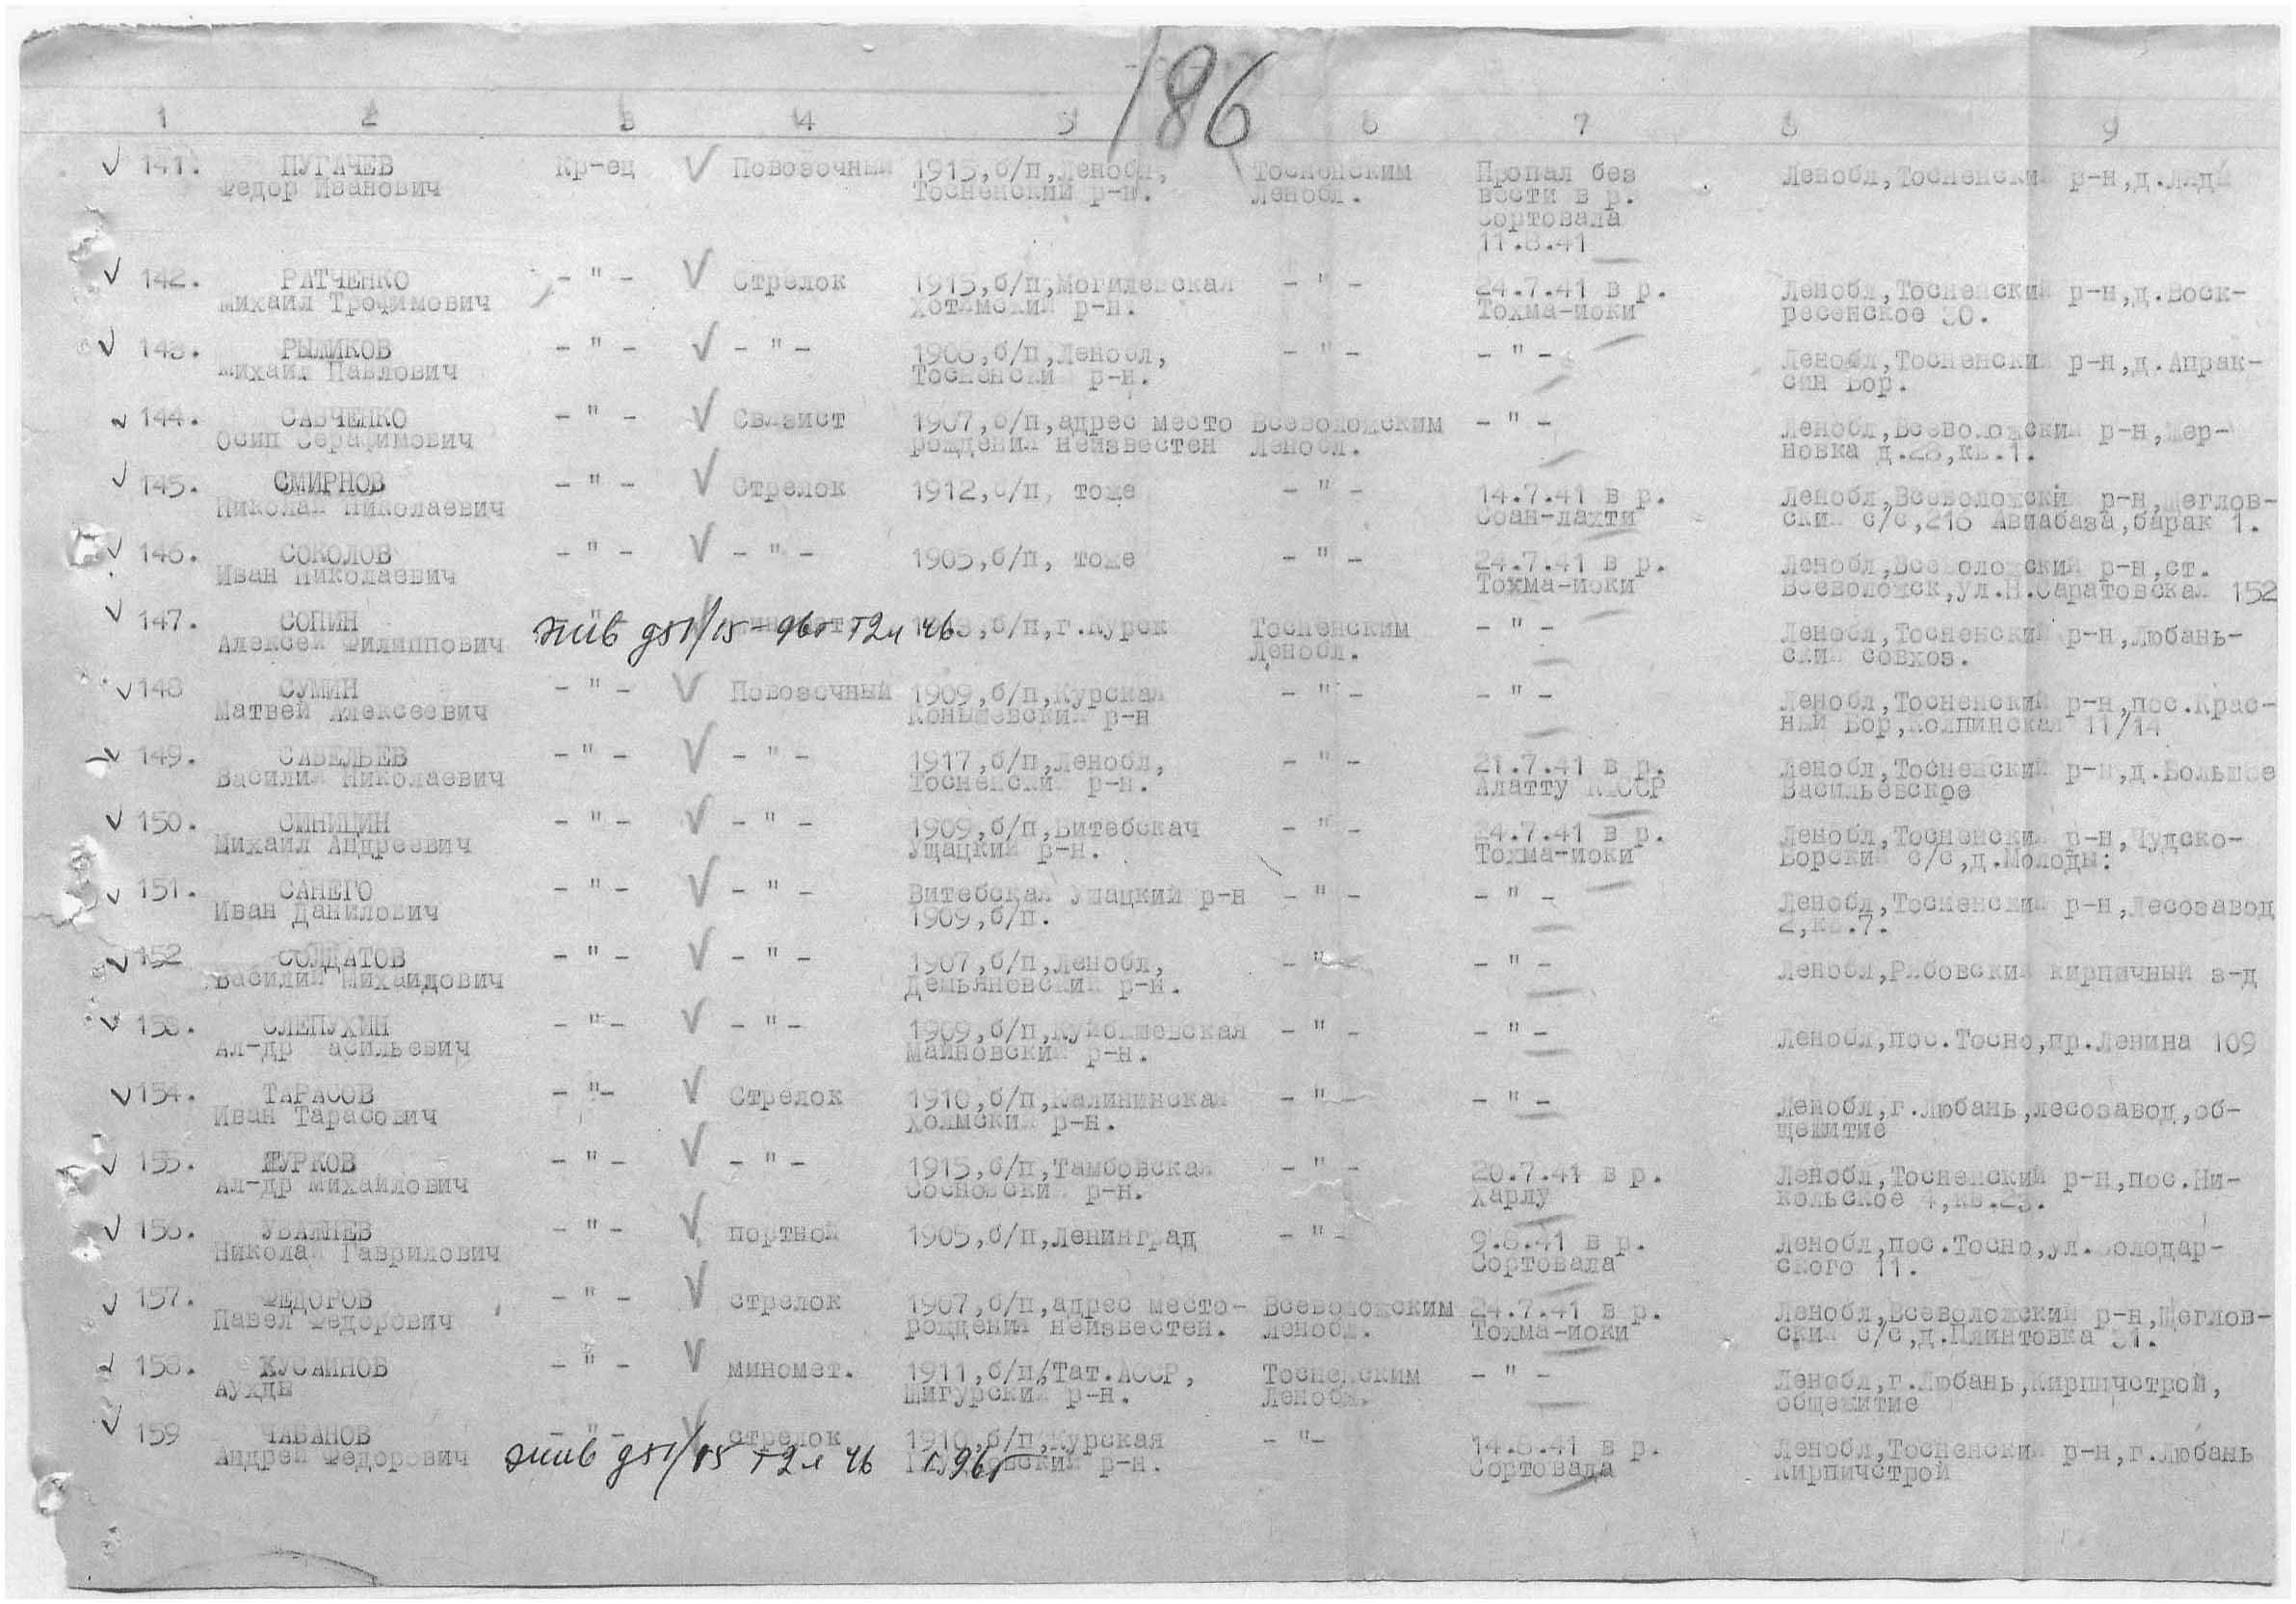 186
1 2 3 4 5 6 7 8 9
141. ПУГАЧЕВ Кр-ец Повозочный 1915,б/п,Ленобл, Тосненским Пропал без Ленобл,Тосненский р-н,д.Ляды
Федор Иванович Тосненский р-н. Ленобл. вести в р.
Сортовала
11.8.41
142. РАТЧЕНКО - " - Стрелок 1915,б/п,Могилевская - " - 24.7.41 в р. Ленобл,Тосненский р-н,д.Воск-
Михаил Трофимович Хотимский р-н. Тохма-иоки ресенское 30.
143. РЫЛИКОВ - " - - " - 1906,б/п,Ленобл, - " - - " - Ленобл,Тосненский р-н,д.Апрак-
Михаил Павлович Тосненский р-н. син Бор.
144. САВЧЕНКО - " - Связист 1907,б/п,адрес место Всеволожским - " - Ленобл,Всеволожский р-н,Чер-
Осип Серафимович рождения неизвестен Ленобл. новка д.28,кв.1.
145. СМИРНОВ - " - Стрелок 1912,б/п, тоже - " - 14.7.41 в р. Ленобл,Всеволожский р-н,Щеглов-
Николай Николаевич Соан-лахти ский с/с,216 Авиабаза,барак 1.
146. СОКОЛОВ - " - - " - 1905,б/п, тоже - " - 24.7.41 в р. Ленобл,Всеволожский р-н,ст.
Иван Николаевич Тохма-иоки Всеволожск,ул.Н.Саратовская 152
147. СОПИН жив б/п,г.Курск Тосненским - " - Ленобл,Тосненский р-н,Любань-
Алексей Филиппович Ленобл. ский совхоз.
148 СУМИН - " - Повозочный 1909,б/п,Курская - " - - " - Ленобл,Тосненский р-н,пос.Крас-
Матвей Алексеевич Конышевский р-н ный Бор,Колпинская 11/14
149. САВЕЛЬЕВ - " - - " - 1917,б/п,Ленобл, - " - 21.7.41 в р. Ленобл,Тосненский р-н,д.Большое
Василий Николаевич Тосненский р-н. Алатту КФССР Васильевское
150. СИНИЦИН - " - - " - 1909,б/п,Витебскач - " - 24.7.41 в р. Ленобл,Тосненский р-н,Чудско-
Михаил Андреевич Ущацкий р-н. Тохма-иоки Борский с/с,д.Молоды:
151. САНЕГО - " - - " - Витебская Ушацкий р-н - " - - " - Ленобл,Тосненский р-н,Лесозавод
Иван Данилович 1909,б/п. 2,кв.7.
152 СОЛДАТОВ - " - - " - 1907,б/п,Ленобл, - " - - " - Ленобл,Рябовский кирпичный з-д
Василий Михайлович Демьяновский р-н.
153. СЛЕПУХИН - " - - " - 1909,б/п,Куйбышевская - " - - " - Ленобл,пос.Тосно,пр.Ленина 109
Ал-др Васильевич Майновский р-н.
154. ТАРАСОВ - " - Стрелок 1910,б/п,Калининская - " - - " - Ленобл,г.Любань,лесозавод,об-
Иван Тарасович Холмский р-н. щежитие
155. ШУРКОВ - " - - " - 1915,б/п,Тамбовская - " - 20.7.41 в р. Ленобл,Тосненский р-н,пос.Ни-
Ал-др Михайлович Сосновский р-н. Харлу кольское 4,кв.23.
156. УВАЛИЕВ - " - портной 1905,б/п,Ленинград - " - 9.8.41 в р. Ленобл,пос.Тосно,ул.Володар-
Николай Гаврилович Сортовала ского 11.
157. ФЕДОРОВ - " - стрелок 1907,б/п,адрес место- Всеволожским 24.7.41 в р. Ленобл,Всеволожский р-н,Щеглов-
Павел Федорович рождения неизвестен. Ленобл. Тохма-иоки ский с/с,д.Плинтовка 31.
158. ХУСАИНОВ - " - миномет. 1911,б/п,Тат.АССР, Тосненским - " - Ленобл,г.Любань,Кирпичстрой,
Аухды Шигурский р-н. Ленобл. общежитие
159 ЧАБАНОВ - " - стрелок 1910,б/п,Курская - " - 14.8.41 в р. Ленобл,Тосненский р-н,г.Любань
Андрей Федорович жив р-н. Сортовала Кирпичстрой